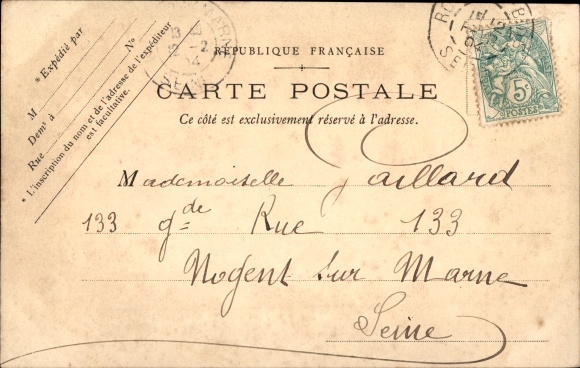 * Expédié par
M N°
Demt à
Rue
* L'inscription du nom et de l'adresse de l'expéditeur
est facultative.
RÉPUBLIQUE FRANÇAISE
CARTE POSTALE
Ce côté est exclusivement réservé à l'adresse.
5c
POSTES
Mademoiselle Gaillard
133 gde Rue 133
Nogent sur Marne
Seine